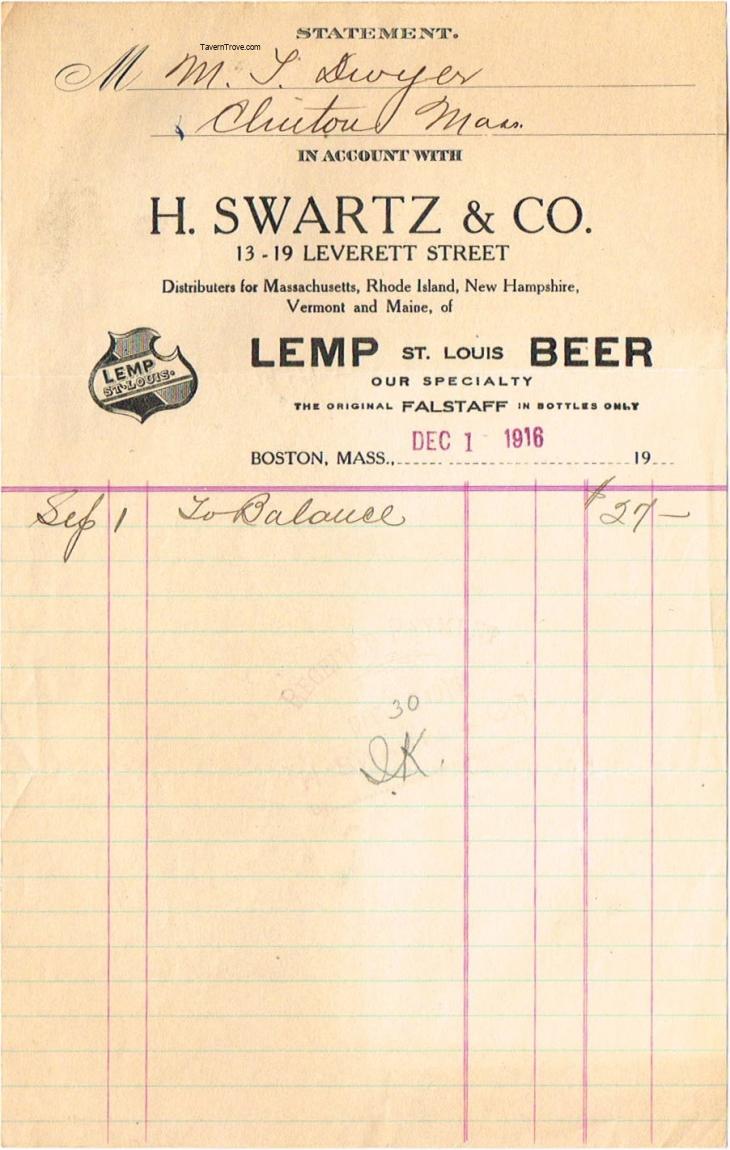 STATEMENT.
TavernTrove.com
M M. J. Dwyer
Clinton Mass.
IN ACCOUNT WITH
H. SWARTZ & CO.
13 - 19 LEVERETT STREET
Distributers for Massachusetts, Rhode Island, New Hampshire,
Vermont and Maine, of
LEMP ST. LOUIS BEER
LEMP
ST. LOUIS.
OUR SPECIALTY
THE ORIGINAL FALSTAFF IN BOTTLES ONLY
DEC 1 1916
BOSTON, MASS., 19
Sep 1 To Balance $27—
RECEIVED PAYMENT
30